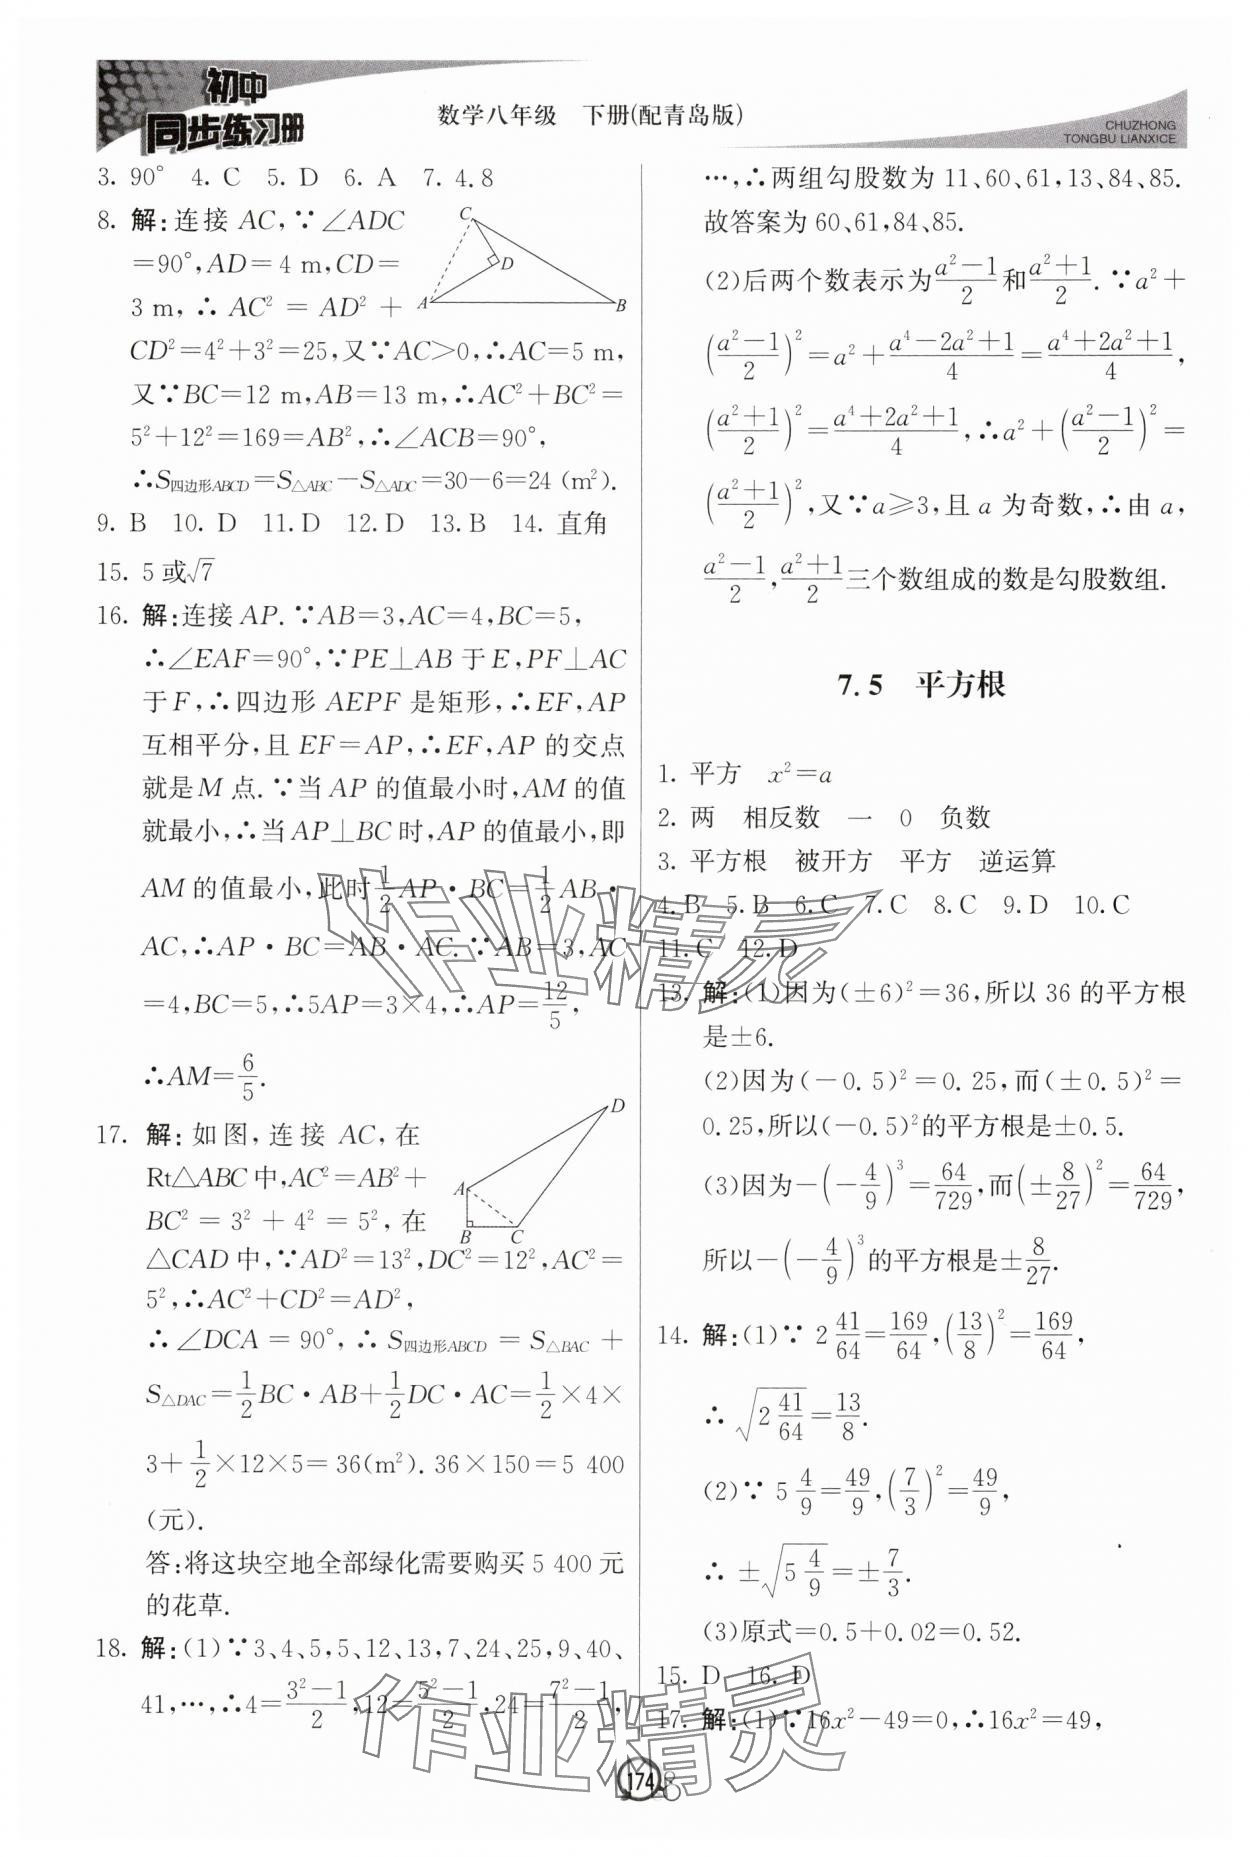 初中
同步练习册
数学八年级 下册(配青岛版)
CHUZHONG
TONGBU LIANXICE
3. 90° 4. C 5. D 6. A 7. 4.8
8. 解:连接 AC,∵∠ADC
=90°,AD=4 m,CD=
3 m,∴ AC² = AD² +
CD²=4²+3²=25,又∵AC>0,∴AC=5 m,
又∵BC=12 m,AB=13 m,∴AC²+BC²=
5²+12²=169=AB²,∴∠ACB=90°,
∴S四边形ABCD=S△ABC-S△ADC=30-6=24 (m²).
C
D
A
B
9. B 10. D 11. D 12. D 13. B 14. 直角
15. 5 或√7
16. 解:连接 AP. ∵AB=3,AC=4,BC=5,
∴∠EAF=90°,∵PE⊥AB 于 E,PF⊥AC
于 F,∴四边形 AEPF 是矩形,∴EF,AP
互相平分,且 EF=AP,∴EF,AP 的交点
就是 M 点. ∵当 AP 的值最小时,AM 的值
就最小,∴当 AP⊥BC 时,AP 的值最小,即
AM 的值最小,此时 1/2 AP·BC=1/2 AB·
AC,∴AP·BC=AB·AC. ∵AB=3,AC
=4,BC=5,∴5AP=3×4,∴AP=12/5,
∴AM=6/5.
17. 解: 如图,连接 AC,在
Rt△ABC 中,AC²=AB²+
BC² = 3² + 4² = 5²,在
△CAD 中,∵AD²=13²,DC²=12²,AC²=
5²,∴AC²+CD²=AD²,
∴∠DCA = 90°,∴ S四边形ABCD = S△BAC +
S△DAC=1/2 BC·AB+1/2 DC·AC=1/2×4×
3+1/2×12×5=36(m²). 36×150=5 400
(元).
答:将这块空地全部绿化需要购买 5 400 元
的花草.
D
A
B
C
18. 解:(1)∵3、4、5,5、12、13,7、24、25,9、40、
41,…,∴4=(3²-1)/2,12=(5²-1)/2,24=(7²-1)/2,
…,∴两组勾股数为 11、60、61,13、84、85.
故答案为 60、61,84、85.
(2)后两个数表示为(a²-1)/2和(a²+1)/2. ∵a²+
((a²-1)/2)²=a²+(a⁴-2a²+1)/4=(a⁴+2a²+1)/4,
((a²+1)/2)²=(a⁴+2a²+1)/4,∴a²+((a²-1)/2)²=
((a²+1)/2)²,又∵a≥3,且 a 为奇数,∴由 a,
(a²-1)/2,(a²+1)/2三个数组成的数是勾股数组.
7.5 平方根
1. 平方 x²=a
2. 两 相反数 一 0 负数
3. 平方根 被开方 平方 逆运算
4. B 5. B 6. C 7. C 8. C 9. D 10. C
11. C 12. D
13. 解:(1)因为(±6)²=36,所以 36 的平方根
是±6.
(2)因为(-0.5)²=0.25,而(±0.5)²=
0.25,所以(-0.5)²的平方根是±0.5.
(3)因为-(-4/9)³=64/729,而(±8/27)²=64/729,
所以-(-4/9)³的平方根是±8/27.
14. 解:(1)∵ 2 41/64=169/64,(13/8)²=169/64,
∴ √(2 41/64)=13/8.
(2)∵ 5 4/9=49/9,(7/3)²=49/9,
∴ ±√(5 4/9)=±7/3.
(3)原式=0.5+0.02=0.52.
15. D 16. D
17. 解:(1)∵16x²-49=0,∴16x²=49,
作业精灵
作业精灵
174